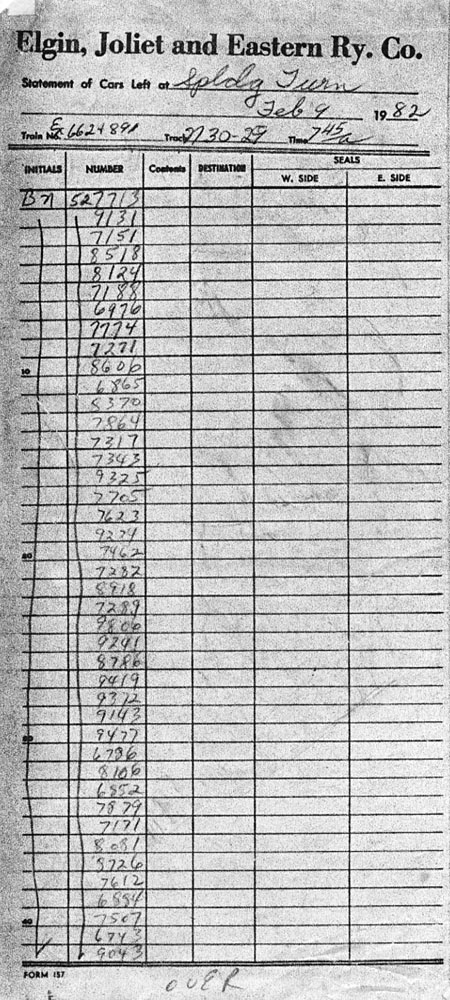 Elgin, Joliet and Eastern Ry. Co.
Statement of Cars Left at Spldg Turn
Feb 9 1982
Train No. Track 30-29 Time 745a
SEALS
INITIALS NUMBER Contents DESTINATION W. SIDE E. SIDE
BN 527713
9131
7151
8518
8124
7188
6976
7774
7271
10 8606
6865
8370
7864
7317
7343
9325
7705
7623
9274
20 7462
7282
8918
7289
9806
9241
8786
9419
9372
9143
30 9477
6786
8106
6852
7879
7171
8081
8726
7612
6884
40 7507
6743
9043
FORM 157
OVER